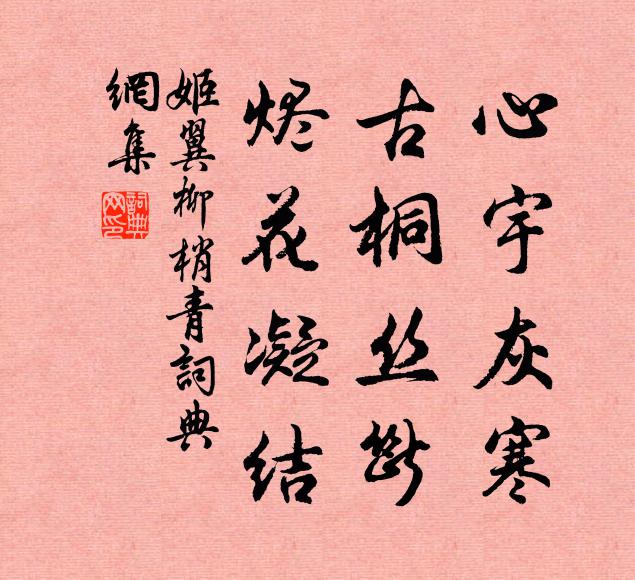 心宇灰寒
古桐丝断
烬花凝结
姬翼柳梢青詞典
網集
詞典
网印